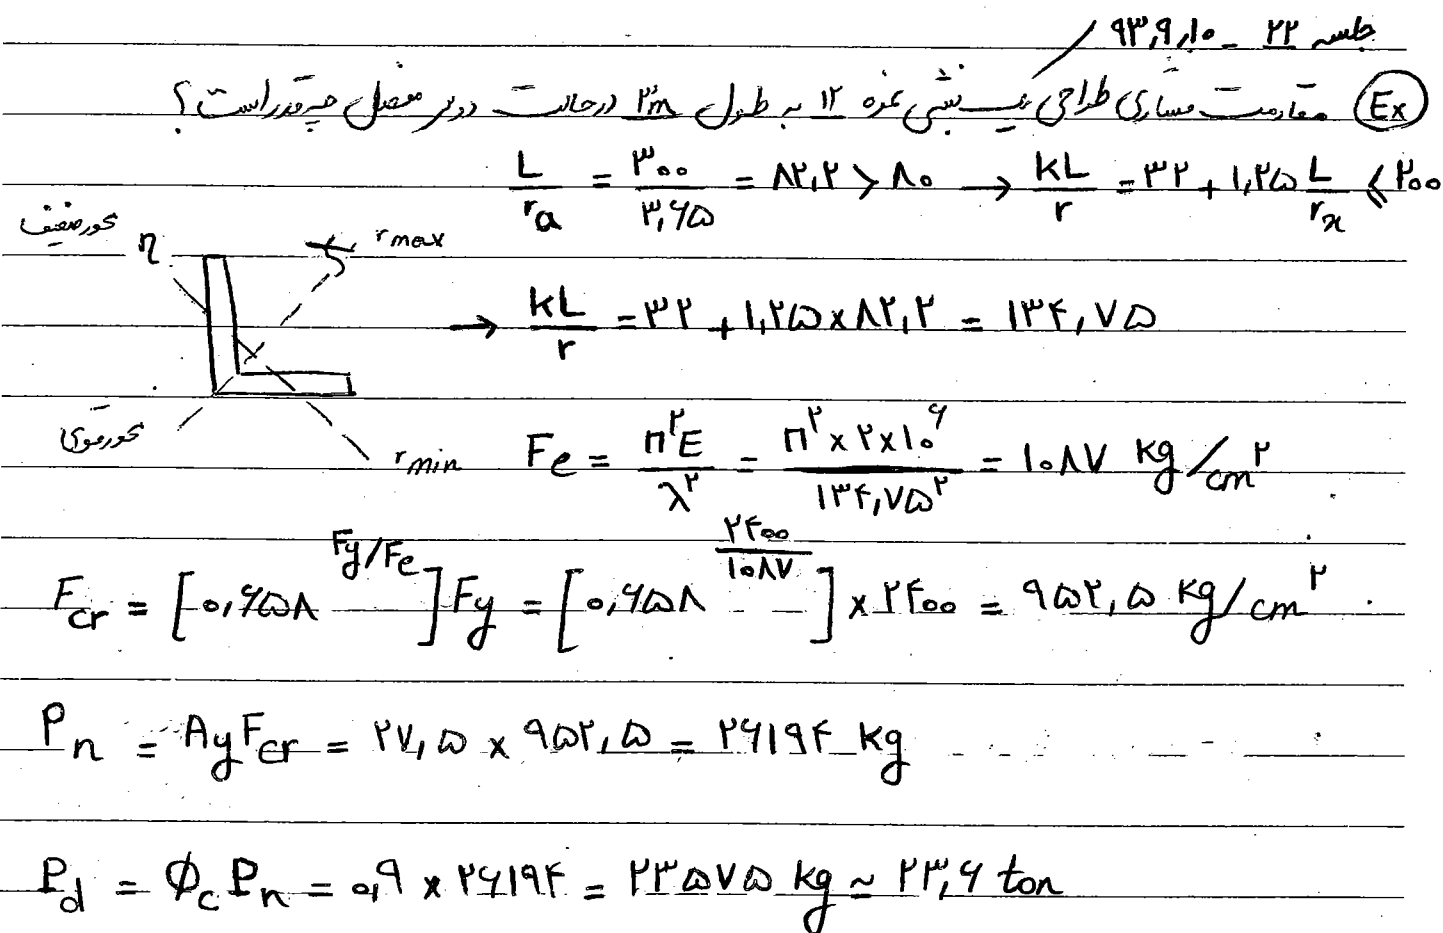 جلسه ۲۲ - ۹۳٫۹٫۱۰
Ex مقاومت فشاری طراحی یک نبشی نمره ۱۲ به طول ۳m در حالت دو سر مفصل چقدر است؟
L/ra = ۳۰۰/۳٫۶۵ = ۸۲٫۲ > ۸۰ → kL/r = ۳۲ + ۱٫۲۵ L/rx ≤ ۲۰۰
محور ضعیف η ζ rmax
→ kL/r = ۳۲ + ۱٫۲۵ x ۸۲٫۲ = ۱۳۴٫۷۵
محور قوی rmin
Fe = π²E/λ² = π² x ۲ x ۱۰^۶/۱۳۴٫۷۵² = ۱۰۸۷ kg/cm²
Fcr = [۰٫۶۵۸^(Fy/Fe)] Fy = [۰٫۶۵۸^(۲۴۰۰/۱۰۸۷)] x ۲۴۰۰ = ۹۵۲٫۵ kg/cm²
Pn = Ag Fcr = ۲۷٫۵ x ۹۵۲٫۵ = ۲۶۱۹۴ kg
Pd = Φc Pn = ۰٫۹ x ۲۶۱۹۴ = ۲۳۵۷۵ kg ~ ۲۳٫۶ ton